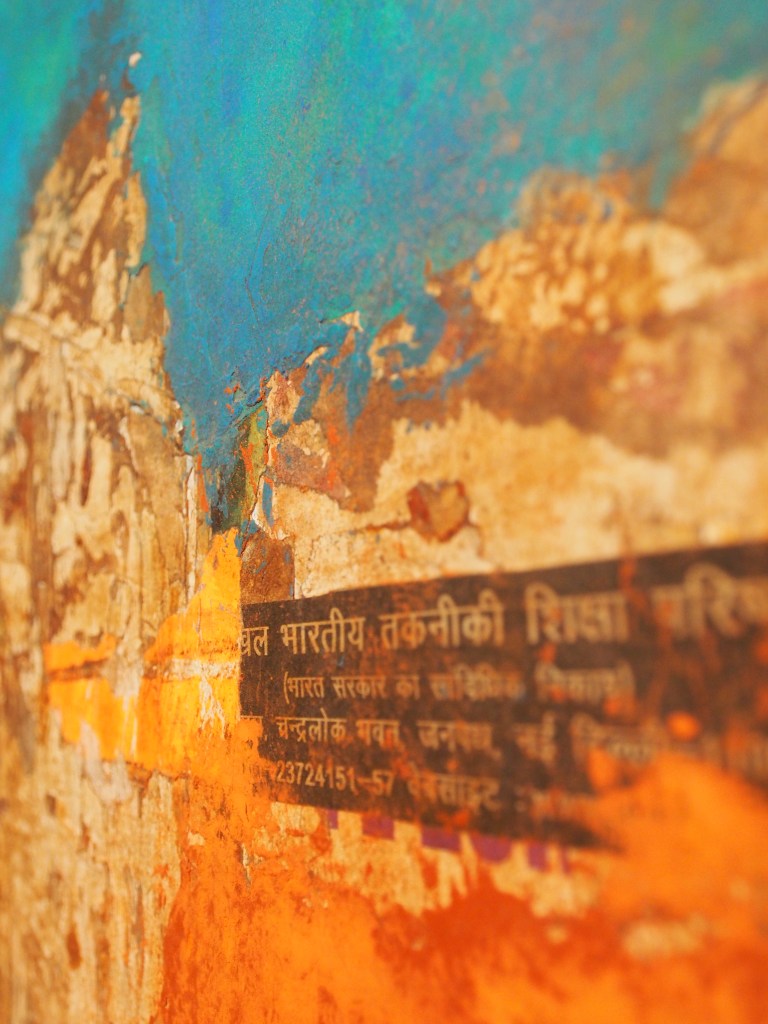 भारतीय तकनीकी शिक्षा
(भारत सरकार का सांविधिक निकाय)
चन्द्रलोक भवन, जनपथ, नई
23724151-57 वेबसाइट :